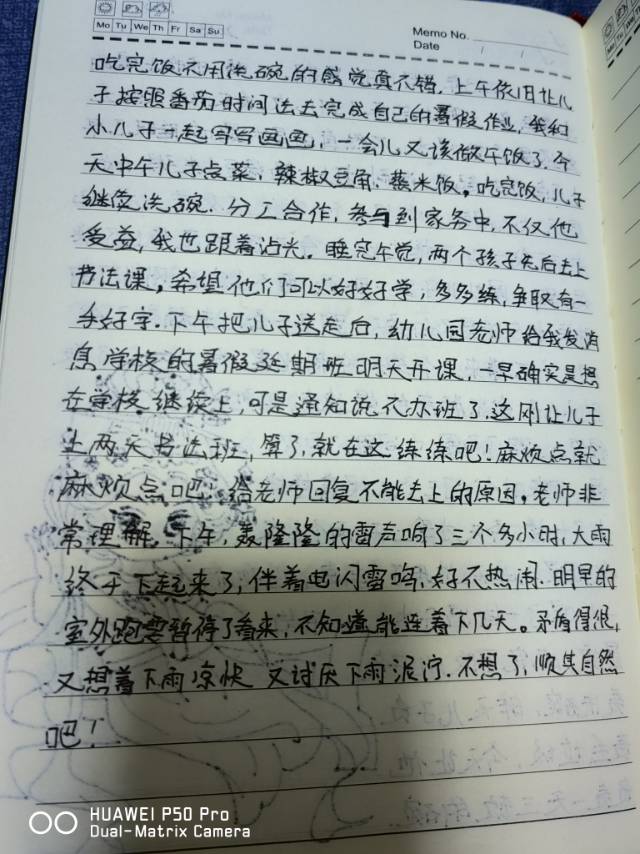 Mo Tu We Th Fr Sa Su
Memo No.
Date / /
吃完饭不用洗碗的感觉真不错。上午依旧让儿
子按照番茄时间法去完成自己的暑假作业,我和
小儿子一起写写画画,一会儿又该做午饭了。今
天中午儿子点菜,辣椒豆角,蒸米饭。吃完饭,儿子
继续洗碗。分工合作,参与到家务中,不仅他
受益,我也跟着沾光。睡完午觉,两个孩子先后去上
书法课。希望他们可以好好学,多多练,争取有一
手好字。下午把儿子送走后,幼儿园老师给我发消
息学校的暑假延期班明天开课,一早确实是想
在学校继续上,可是通知说不办班了。这刚让儿子
上两天书法班,算了,就在这练练吧!麻烦点就
麻烦点吧!给老师回复不能去上的原因。老师非
常理解。下午,轰隆隆的雷声响了三个多小时,大雨
终于下起来了,伴着电闪雷鸣,好不热闹。明早的
室外跑要暂停了看来,不知道能连着下几天。矛盾得很,
又想着下雨凉快 又讨厌下雨泥泞。不想了,顺其自然
吧!
HUAWEI P50 Pro
Dual-Matrix Camera